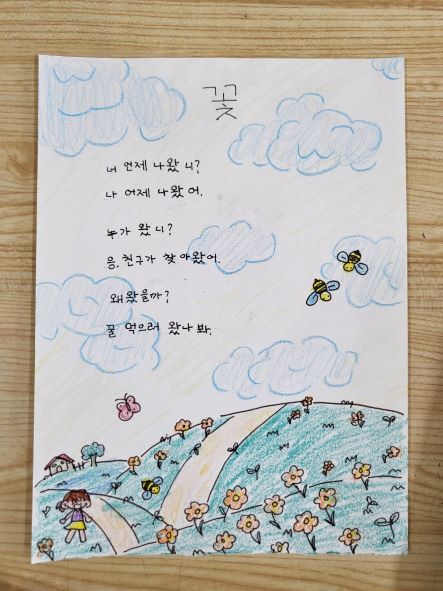 꽃
너 언제 나왔니?
나 어제 나왔어.
누가 왔니?
응, 친구가 찾아왔어.
왜 왔을까?
꿀 먹으러 왔나 봐.